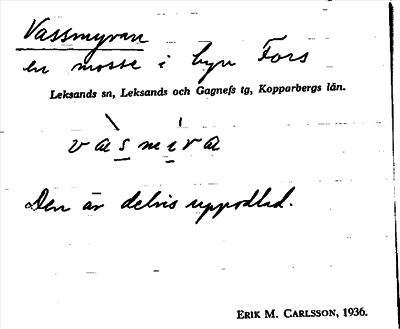 Vassmyran
en mosse i byn Fors
Leksands sn, Leksands och Gagnefs tg, Kopparbergs län.
vàsmíra
Den är delvis uppodlad.
ERIK M. CARLSSON, 1936.